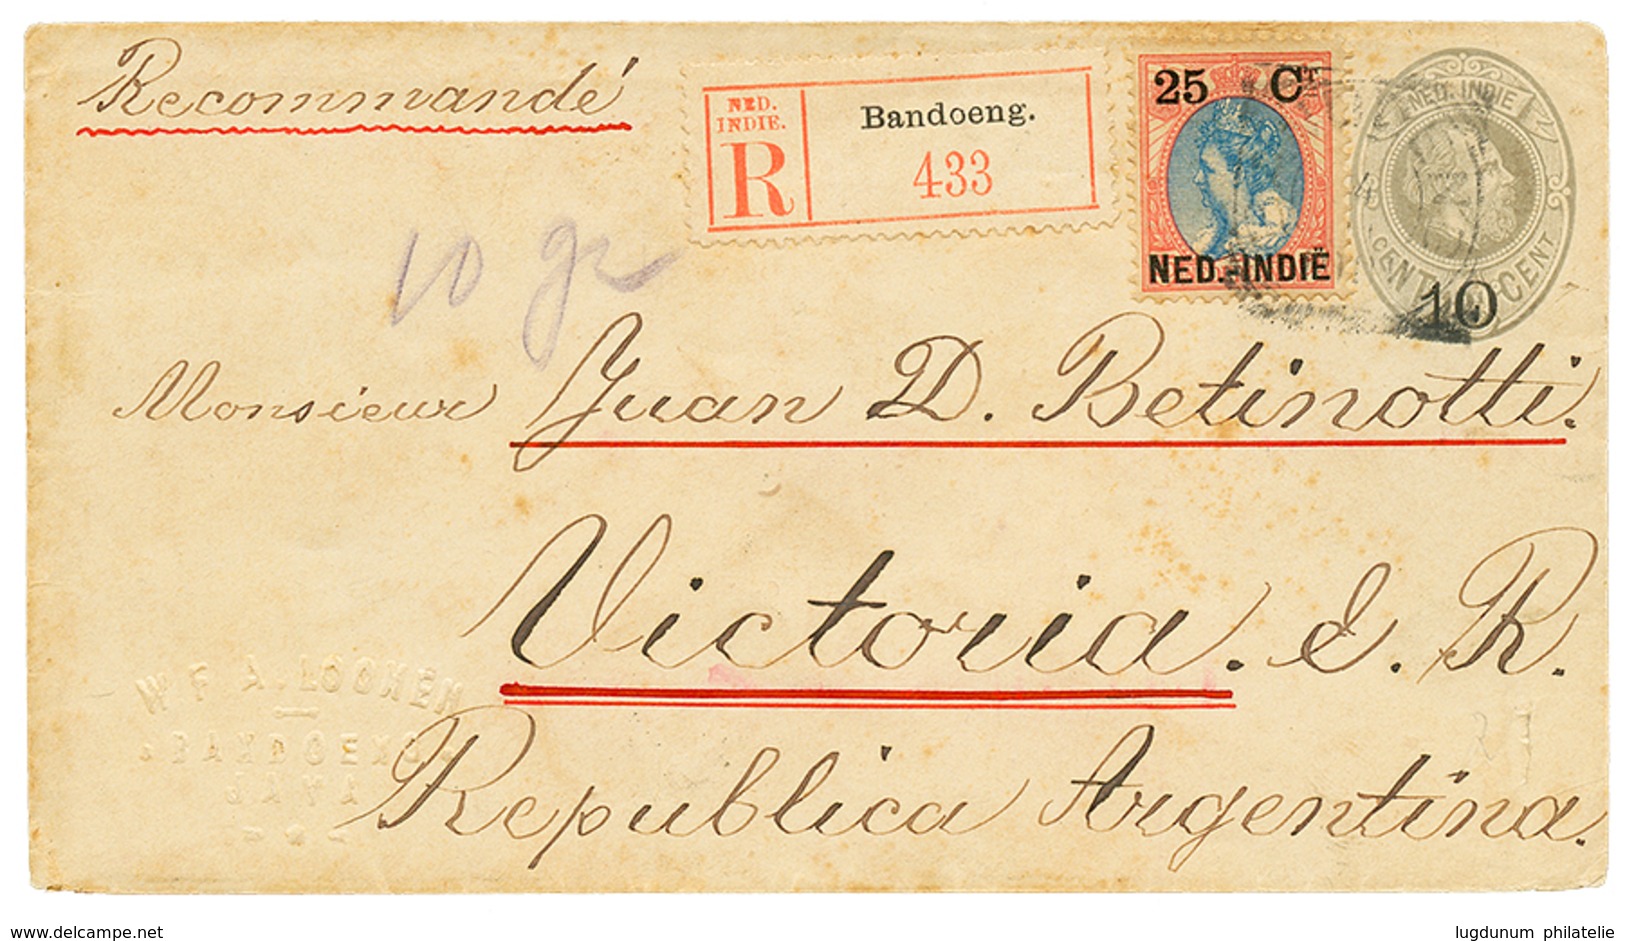 Recommandé
NED. INDIE.
R
Bandoeng.
433
25 CT
NED.-INDIË
NED. INDIE
CENT CENT
10
10 gr
Monsieur Juan D. Betinotti.
Victoria. E. R.
Republica Argentina.
delcampe.net
lugdunum philatelie